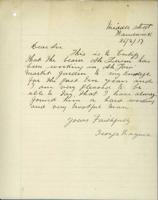 Middle Street
26/2/17
Dear Sir
This is to Certify
that the bearer Ah
has
been working in
Market Garden to my knowledge
for the past ten years and
I am very pleased to be
able to say that I have always
found him a hard working
and very honest man
Yours Faithfully
George